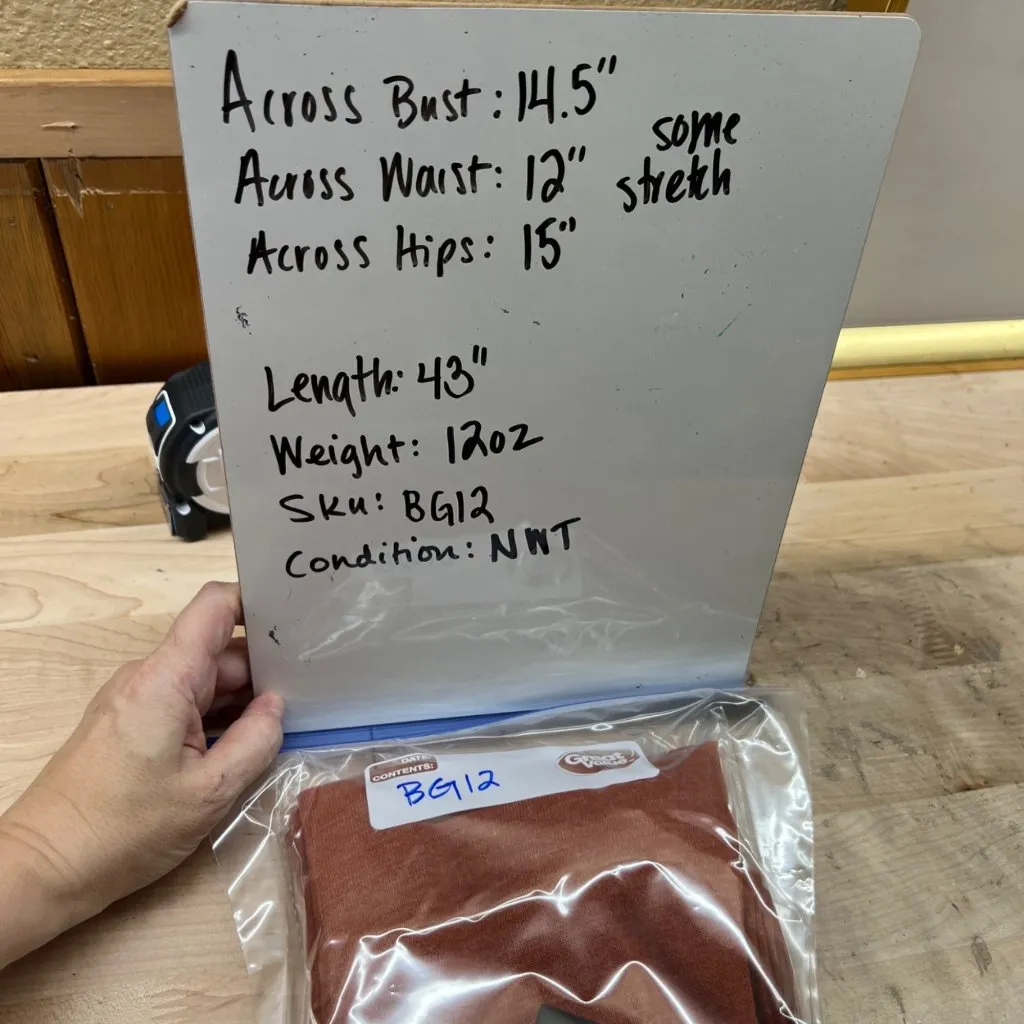 Across Bust: 14.5"
some
Across Waist: 12" stretch
Across Hips: 15"
Length: 43"
Weight: 12oz
Sku: BG12
Condition: NWT
DATE
CONTENTS: BG12
Great Value